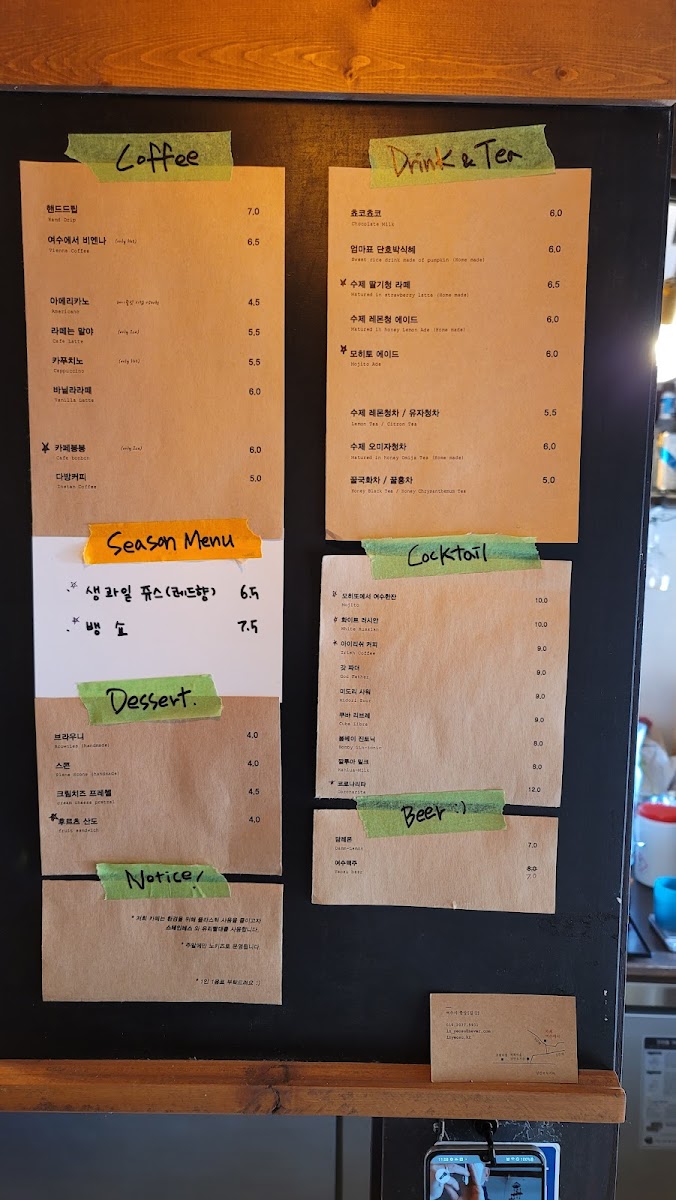 Coffee
핸드드립 7.0
Hand Drip
여수에서 비엔나 (only hot) 6.5
Vienna Coffee
아메리카노 4.5
Americano
라떼는 말야 (only Ice) 5.5
Cafe Latte
카푸치노 (only hot) 5.5
Cappuccino
바닐라라떼 6.0
Vanilla Latte
카페봉봉 (only Ice) 6.0
Cafe bonbon
다방커피 5.0
Instan Coffee
Season Menu
생과일 쥬스(레드향) 6.5
뱅쇼 7.5
Dessert.
브라우니 4.0
Brownies (handmade)
스콘 4.0
크림치즈 프레첼 4.5
Cream cheese pretzel
후르츠 산도 4.0
Fruit sandwich
Notice!
* 저희 카페는 환경을 위해 플라스틱 사용을 줄이고자
스테인레스 와 유리빨대를 사용합니다.
* 주말에만 노키즈로 운영됩니다.
* 1인 1음료 부탁드려요 :)
Drink & Tea
쵸코쵸코 6.0
Chocolate Milk
엄마표 단호박식혜 6.0
Sweet rice drink made of pumpkin (Home made)
수제 딸기청 라떼 6.5
Matured in strawberry Latte (Home made)
수제 레몬청 에이드 6.0
Matured in honey Lemon Ade (Home made)
모히토 에이드 6.0
Mojito Ade
수제 레몬청차 / 유자청차 5.5
Lemon Tea / Citron Tea
수제 오미자청차 6.0
Matured in honey Omija Tea (Home made)
꿀국화차 / 꿀홍차 5.0
Honey Black Tea / Honey Chrysanthemum Tea
Cocktail
모히또에서 여수한잔 10.0
Mojito
화이트 러시안 10.0
White Russian
아이리쉬 커피 9.0
Irish Coffee
갓 파더 9.0
God Father
미도리 사워 9.0
Midori Sour
쿠바 리브레 9.0
Cuba libre
봄베이 진토닉 8.0
Bombay Gin-tonic
깔루아 밀크 8.0
Kahlua-Milk
코로나리타 12.0
Coronarita
Beer :)
담레몬 7.0
여수맥주 8.0
Yeosu beer 7.0
11:38
100%